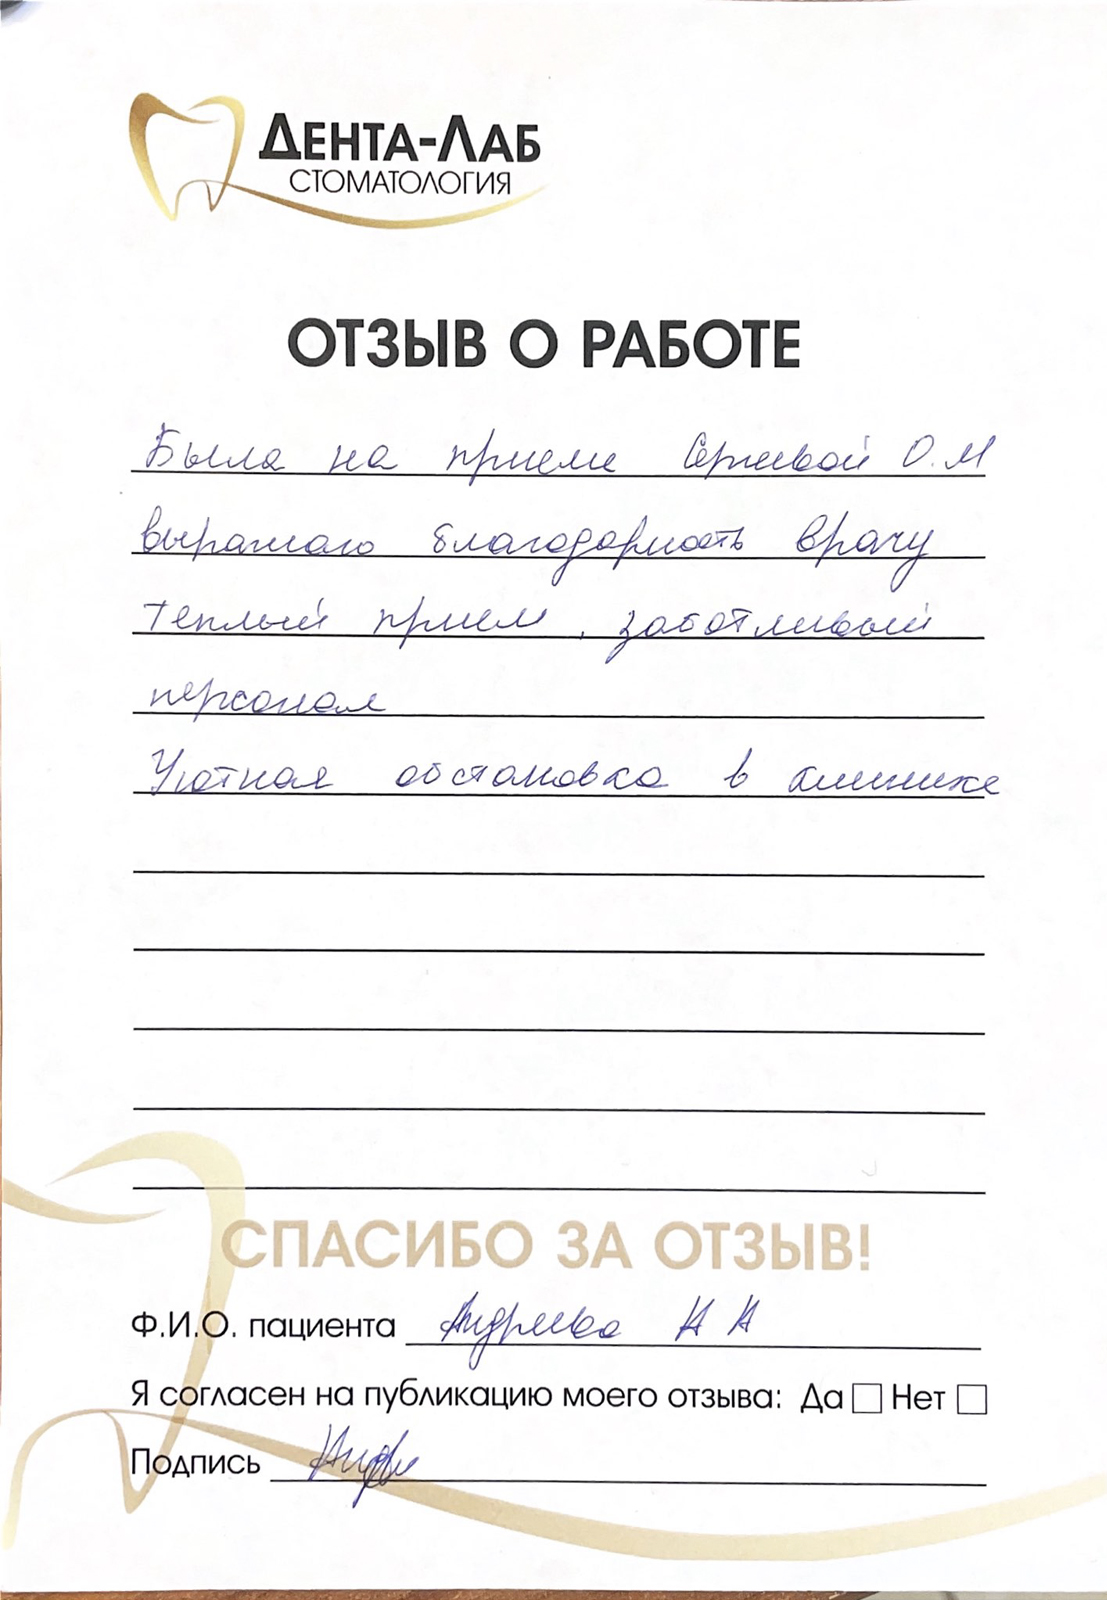 ДЕНТА-ЛАБ
СТОМАТОЛОГИЯ
ОТЗЫВ О РАБОТЕ
Была на приеме О.М
выражаю благодарность врачу
теплый прием, заботливый
персонал
Уютная обстановка в клинике
СПАСИБО ЗА ОТЗЫВ!
Ф.И.О. пациента Андреева Н Н
Я согласен на публикацию моего отзыва: Да Нет
Подпись